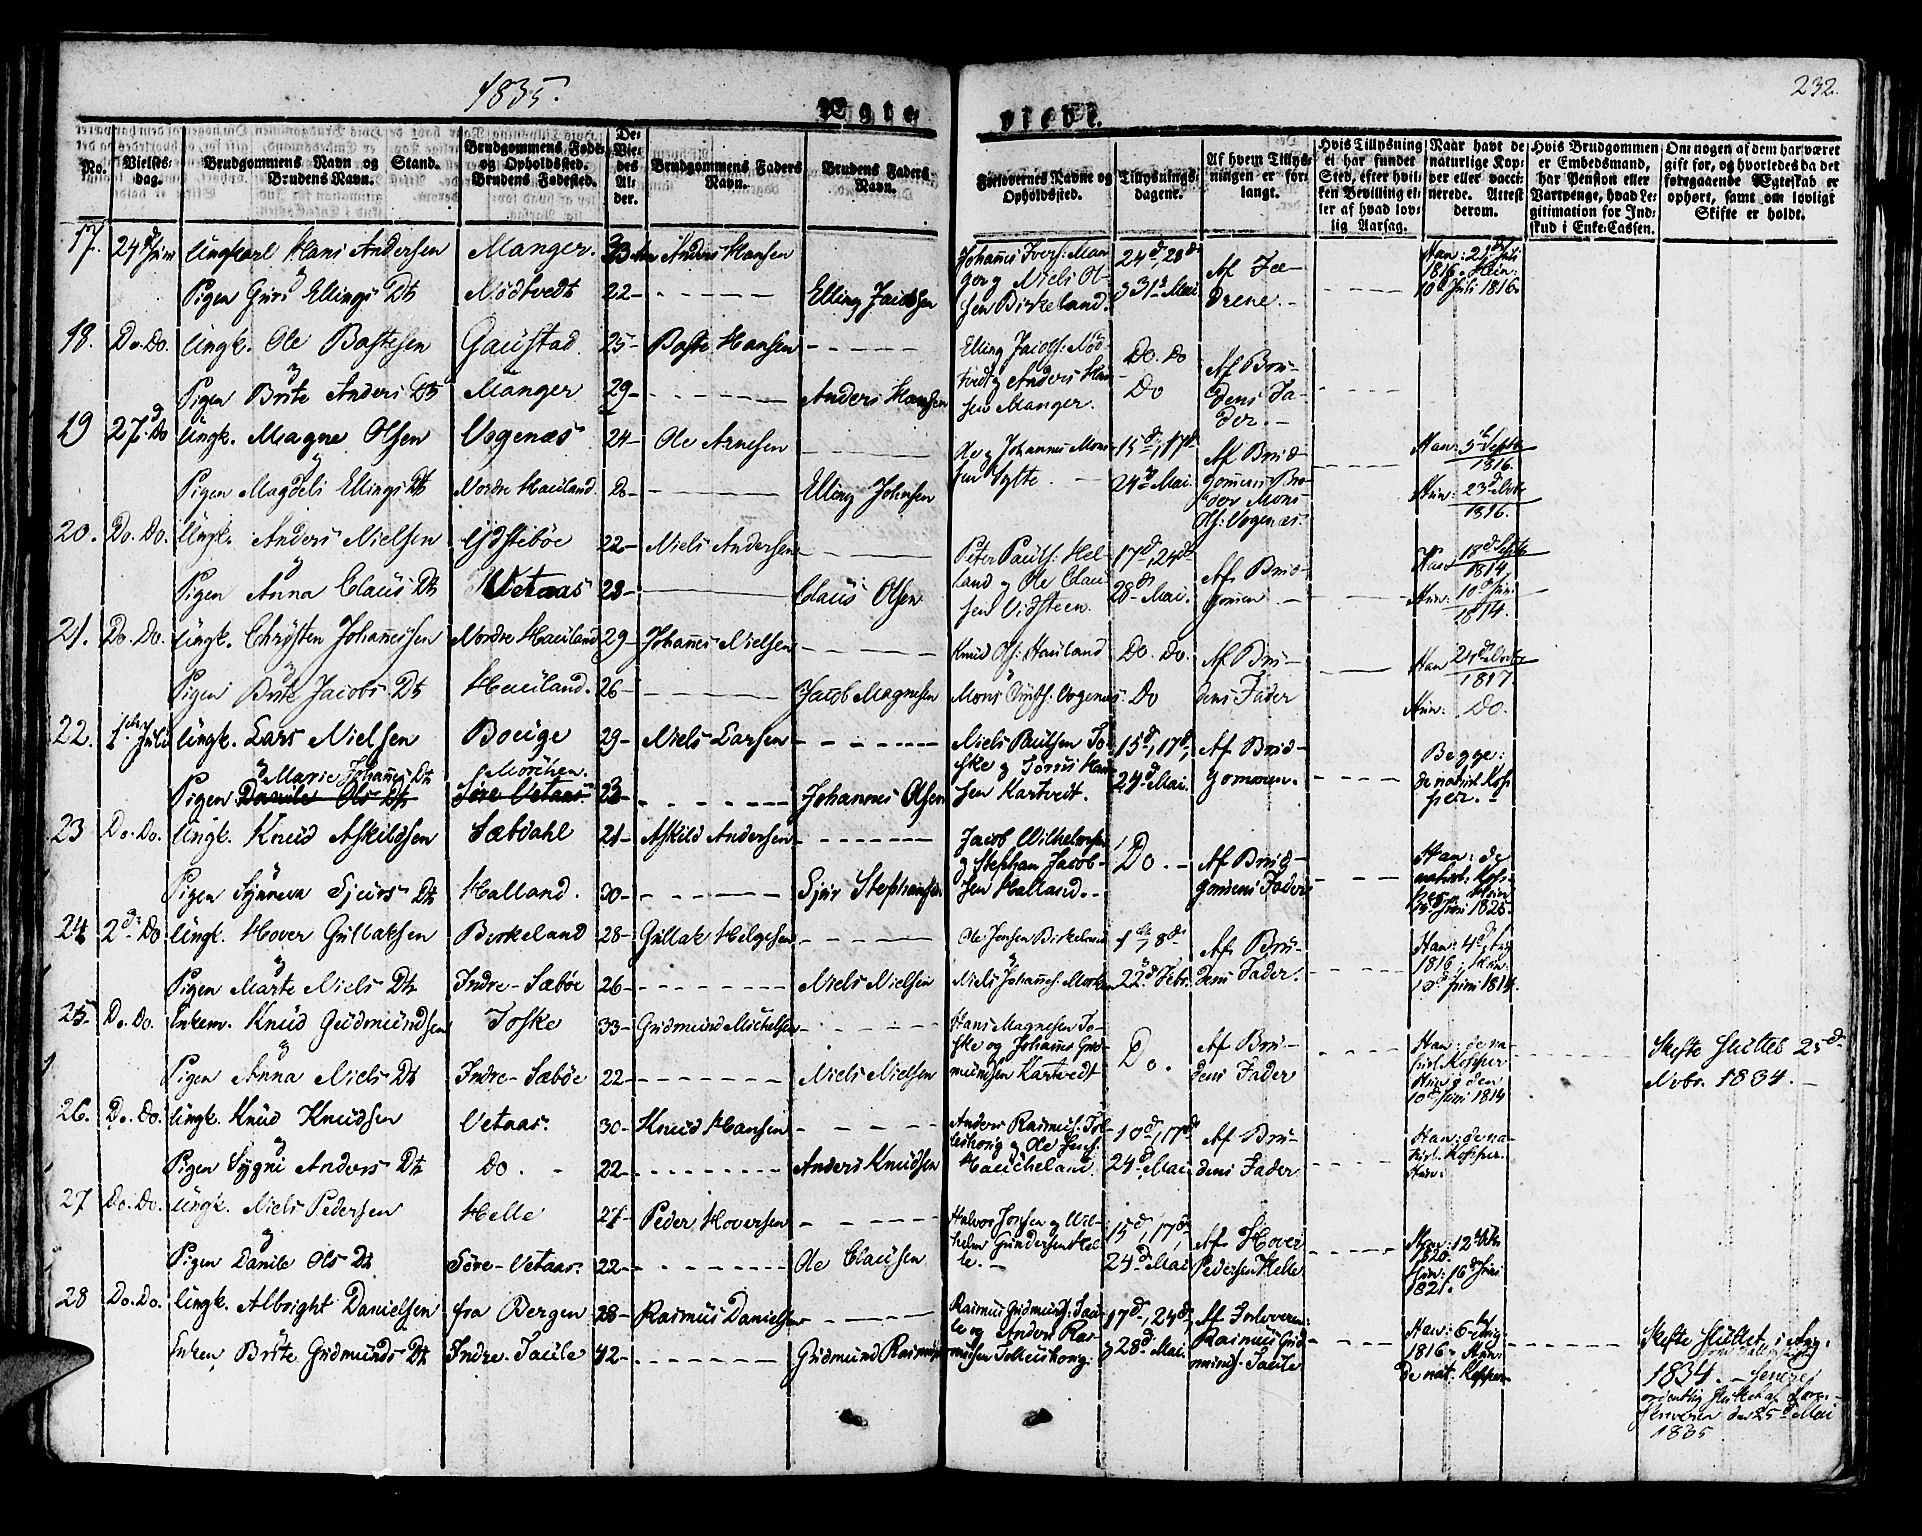 1835.
232.
Ægte
viede.
No.
Vielsesdag.
Brudgommens Navn og Stand. Brudens Navn.
Brudgommens Føde- og Opholdssted. Brudens Fødested.
De Viedes Alder.
Brudgommens Faders Navn.
Brudens Faders Navn.
Forlovernes Navne og Opholdssted.
Tillysningsdagene.
Af hvem Tillysningen er forlangt.
Hvis Tillysning ei har fundet Sted, efter hvilken Bevilling eller af hvad lovlig Aarsag.
Naar havt de naturlige Kopper eller vaccinerede. Attest derom.
Hvis Brudgommen er Embedsmand, har Pension eller Vartpenge, hvad Legitimation for Indskud i Enke-Cassen.
Om nogen af dem har været gift før, og hvorledes da det foregaaende Ægteskab er ophørt, samt om lovligt Skifte er holdt.
17. 24d Juni Ungkarl Hans Andersen Manger. 33 Anders Hansen
Johannes Ivers: Manger og Niels Olsen Birkeland. 24d, 28d & 31d Mai Af Fædrene.
Han: 21d Juli 1816. Hun: 10d Juli 1816.
Pigen Guri Ellings Dtr Nödtvedt 22 Elling Jacobsen
18. Do. Do. Ungk. Ole Bastesen Gaustad. 25 Baste Hansen
Elling Jacobs: Nödtvedt og Anders Hansen Manger. Do. Do Do Af Brudens Fader.
Pigen Brite Anders Dtr Manger 29 Anders Hansen
19 27d Do Ungk. Magne Olsen Vogenæs 24 Ole Arnesen
Ole og Johannes Monsen Sylte. 15d, 17d 24d Mai. Af Brudgomens Broder Mons Ols: Vogenæs.
Han: 5 Septb 1816.
Hun: 23d 1816.
Pigen Magdeli Ellings Dtr Nordre Hauland. Do Elling Johnsen
20. Do. Do. Ungk. Anders Nielsen Gidstebøe 22 Niels Andersen
Peter Pauls: Helland og Ole Clausen Vidsteen. 17d, 24d 28d Mai. Af Brudgomen
Han 18d Septb 1814
Hun: 10d Juni 1814.
Pigen Anna Claus Dtr Vetaas 28 Claus Olsen
21. Do. Do. Ungk. Christen Johannessen Nordre Hauland 29 Johannes Nielsen
Knud Ols: Hauland Mons Vogenæs. Do. Do. Do Af Brudens Fader
Han 24d 1817.
Hun: Do.
Pigen Brite Jacobs Dtr Hauland. 26 Jacob Magnesen
22. 1ste Juli Ungk. Lars Nielsen Bouge 29 Niels Larsen
Niels Paulsen Toske og Hansen Kartvedt. 15d, 17d, 24d Mai. Af Brudgommen.
Begge: de naturl. Kopper.
Marie Johannes Dtr Morchen.
Pigen Danile Ols Dtr Søre Vetaas. 23 Johannes Olsen
23 Do. Do. Ungk. Knud Askildsen Sæbdahl 21 Askild Andersen
Jacob Wilhelmsen og Stephan Jacobsen Halland. Do. Af Brudgomens Fader
Han: de naturl: Kopper. Hun: 15 Juni 1825.
Pigen Synneva Sjurs Dtr Halland. 30 Sjur Stephansen
24 2d Do Ungk. Hover Gullaksen Birkeland 28 Gullak Helgesen
Ole Jensen Birkeland Niels Johannes: 1ste, 8d 22d Febr. Af Brudens Fader.
Han: 4d Aug 1816; Hun: 10d Juni 1814.
Pigen Marte Niels Dtr Indre-Sæbøe 26 Niels Nielsen
25. Do. Do. Enkem. Knud Gudmundsen Toske 33 Gudmund Michelsen
Hans Magnesen Toske og Johannes Gudmundsen Kartvedt Do. Af Brudens Fader
Han: de naturl. Kopper Hun: den 10d Juni 1814
Skifte sluttet 25d Novbr. 1834.
Pigen Anna Niels Dtr Indre-Sæbøe 22 Niels Nielsen
26. Do. Do. Ungk. Knud Knudsen Vetaas. 30 Knud Hansen
Anders Rasmus: og Ole Haucheland. 10d, 17d 24d Mai Af Brudens Fader
Han: de naturl. Kopper. Hun:
Pigen Sygni Anders Dtr Do. 22 Anders Knudsen
27 Do. Do. Ungk. Niels Pedersen Helle 27 Peder Hoversen
Halvor Jonsen og Wilhelm Gundersen Helle. 15d, 17d, 24d Mai Af Hover Pedersen Helle
Han: 12 1820. Hun: 16d Juni 1821.
Pigen Danile Ols Dtr Søre-Vetaas. 22 Ole Clausen
28 Do. Do. Ungk. Albright Danielsen fra Bergen 28 Rasmus Danielsen
Rasmus Gudmunds: Taule og Anders Rasmusen 17d, 24d & 28d Mai. Af Forloveren Rasmus Gudmunds: Taule
Han: 6 Aug 1816. Hun: de nat. Kopper
Skifte sluttet i Aug. 1834.
25d Mai 1835
Enken Brite Gudmunds Dtr Indre-Taule 42 Gudmund Rasmus